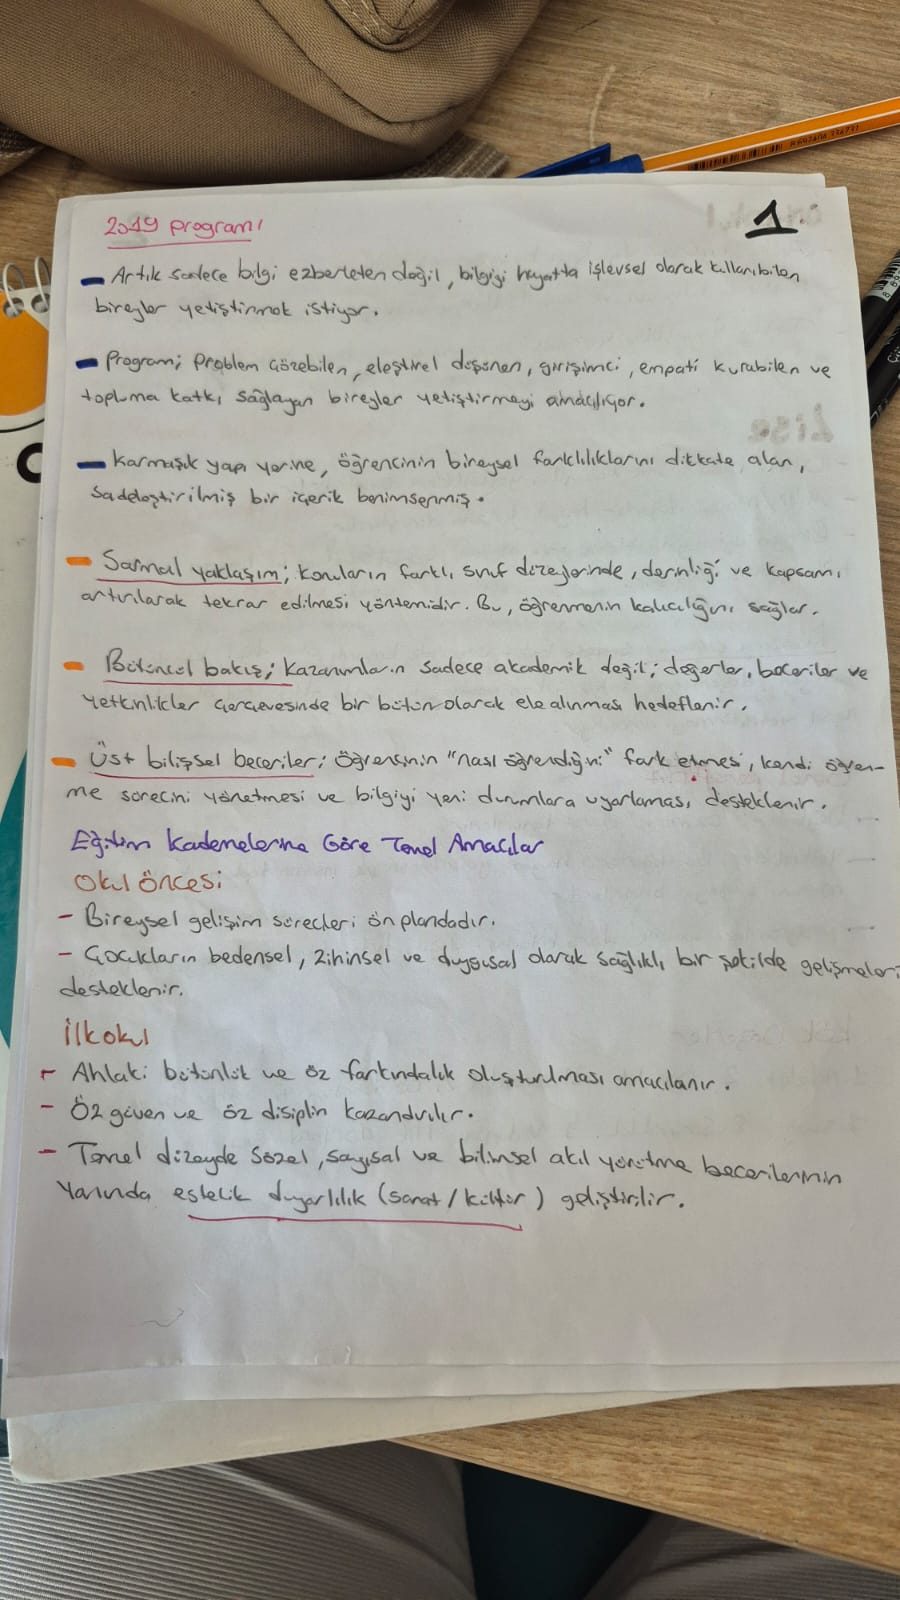 1
2019 programı
Artık sadece bilgi ezberleten değil, bilgiyi hayatta işlevsel olarak kullanabilen
bireyler yetiştirmek istiyor.
Program; problem çözebilen, eleştirel düşünen, girişimci, empati kurabilen ve
topluma katkı sağlayan bireyler yetiştirmeyi amaçlıyor.
Karmaşık yapı yerine, öğrencinin bireysel farklılıklarını dikkate alan,
sadeleştirilmiş bir içerik benimsenmiş.
Sarmal yaklaşım; konuların farklı sınıf düzeylerinde, derinliği ve kapsamı
artırılarak tekrar edilmesi yöntemidir. Bu, öğrenmenin kalıcılığını sağlar.
Bütüncül bakış; kazanımların sadece akademik değil; değerler, beceriler ve
yetkinlikler çerçevesinde bir bütün olarak ele alınması hedeflenir.
Üst bilişsel beceriler; öğrencinin "nasıl öğrendiğini" fark etmesi, kendi öğren-
me sürecini yönetmesi ve bilgiyi yeni durumlara uyarlaması desteklenir.
Eğitim Kademelerine Göre Temel Amaçlar
Okul öncesi
- Bireysel gelişim süreçleri ön plandadır.
- Çocukların bedensel, zihinsel ve duygusal olarak sağlıklı bir şekilde gelişmeleri
desteklenir.
İlkokul
- Ahlaki bütünlük ve öz farkındalık oluşturulması amaçlanır.
- Öz güven ve öz disiplin kazandırılır.
- Temel düzeyde sözel, sayısal ve bilimsel akıl yürütme becerilerinin
yanında estetik duyarlılık (sanat / kültür) geliştirilir.